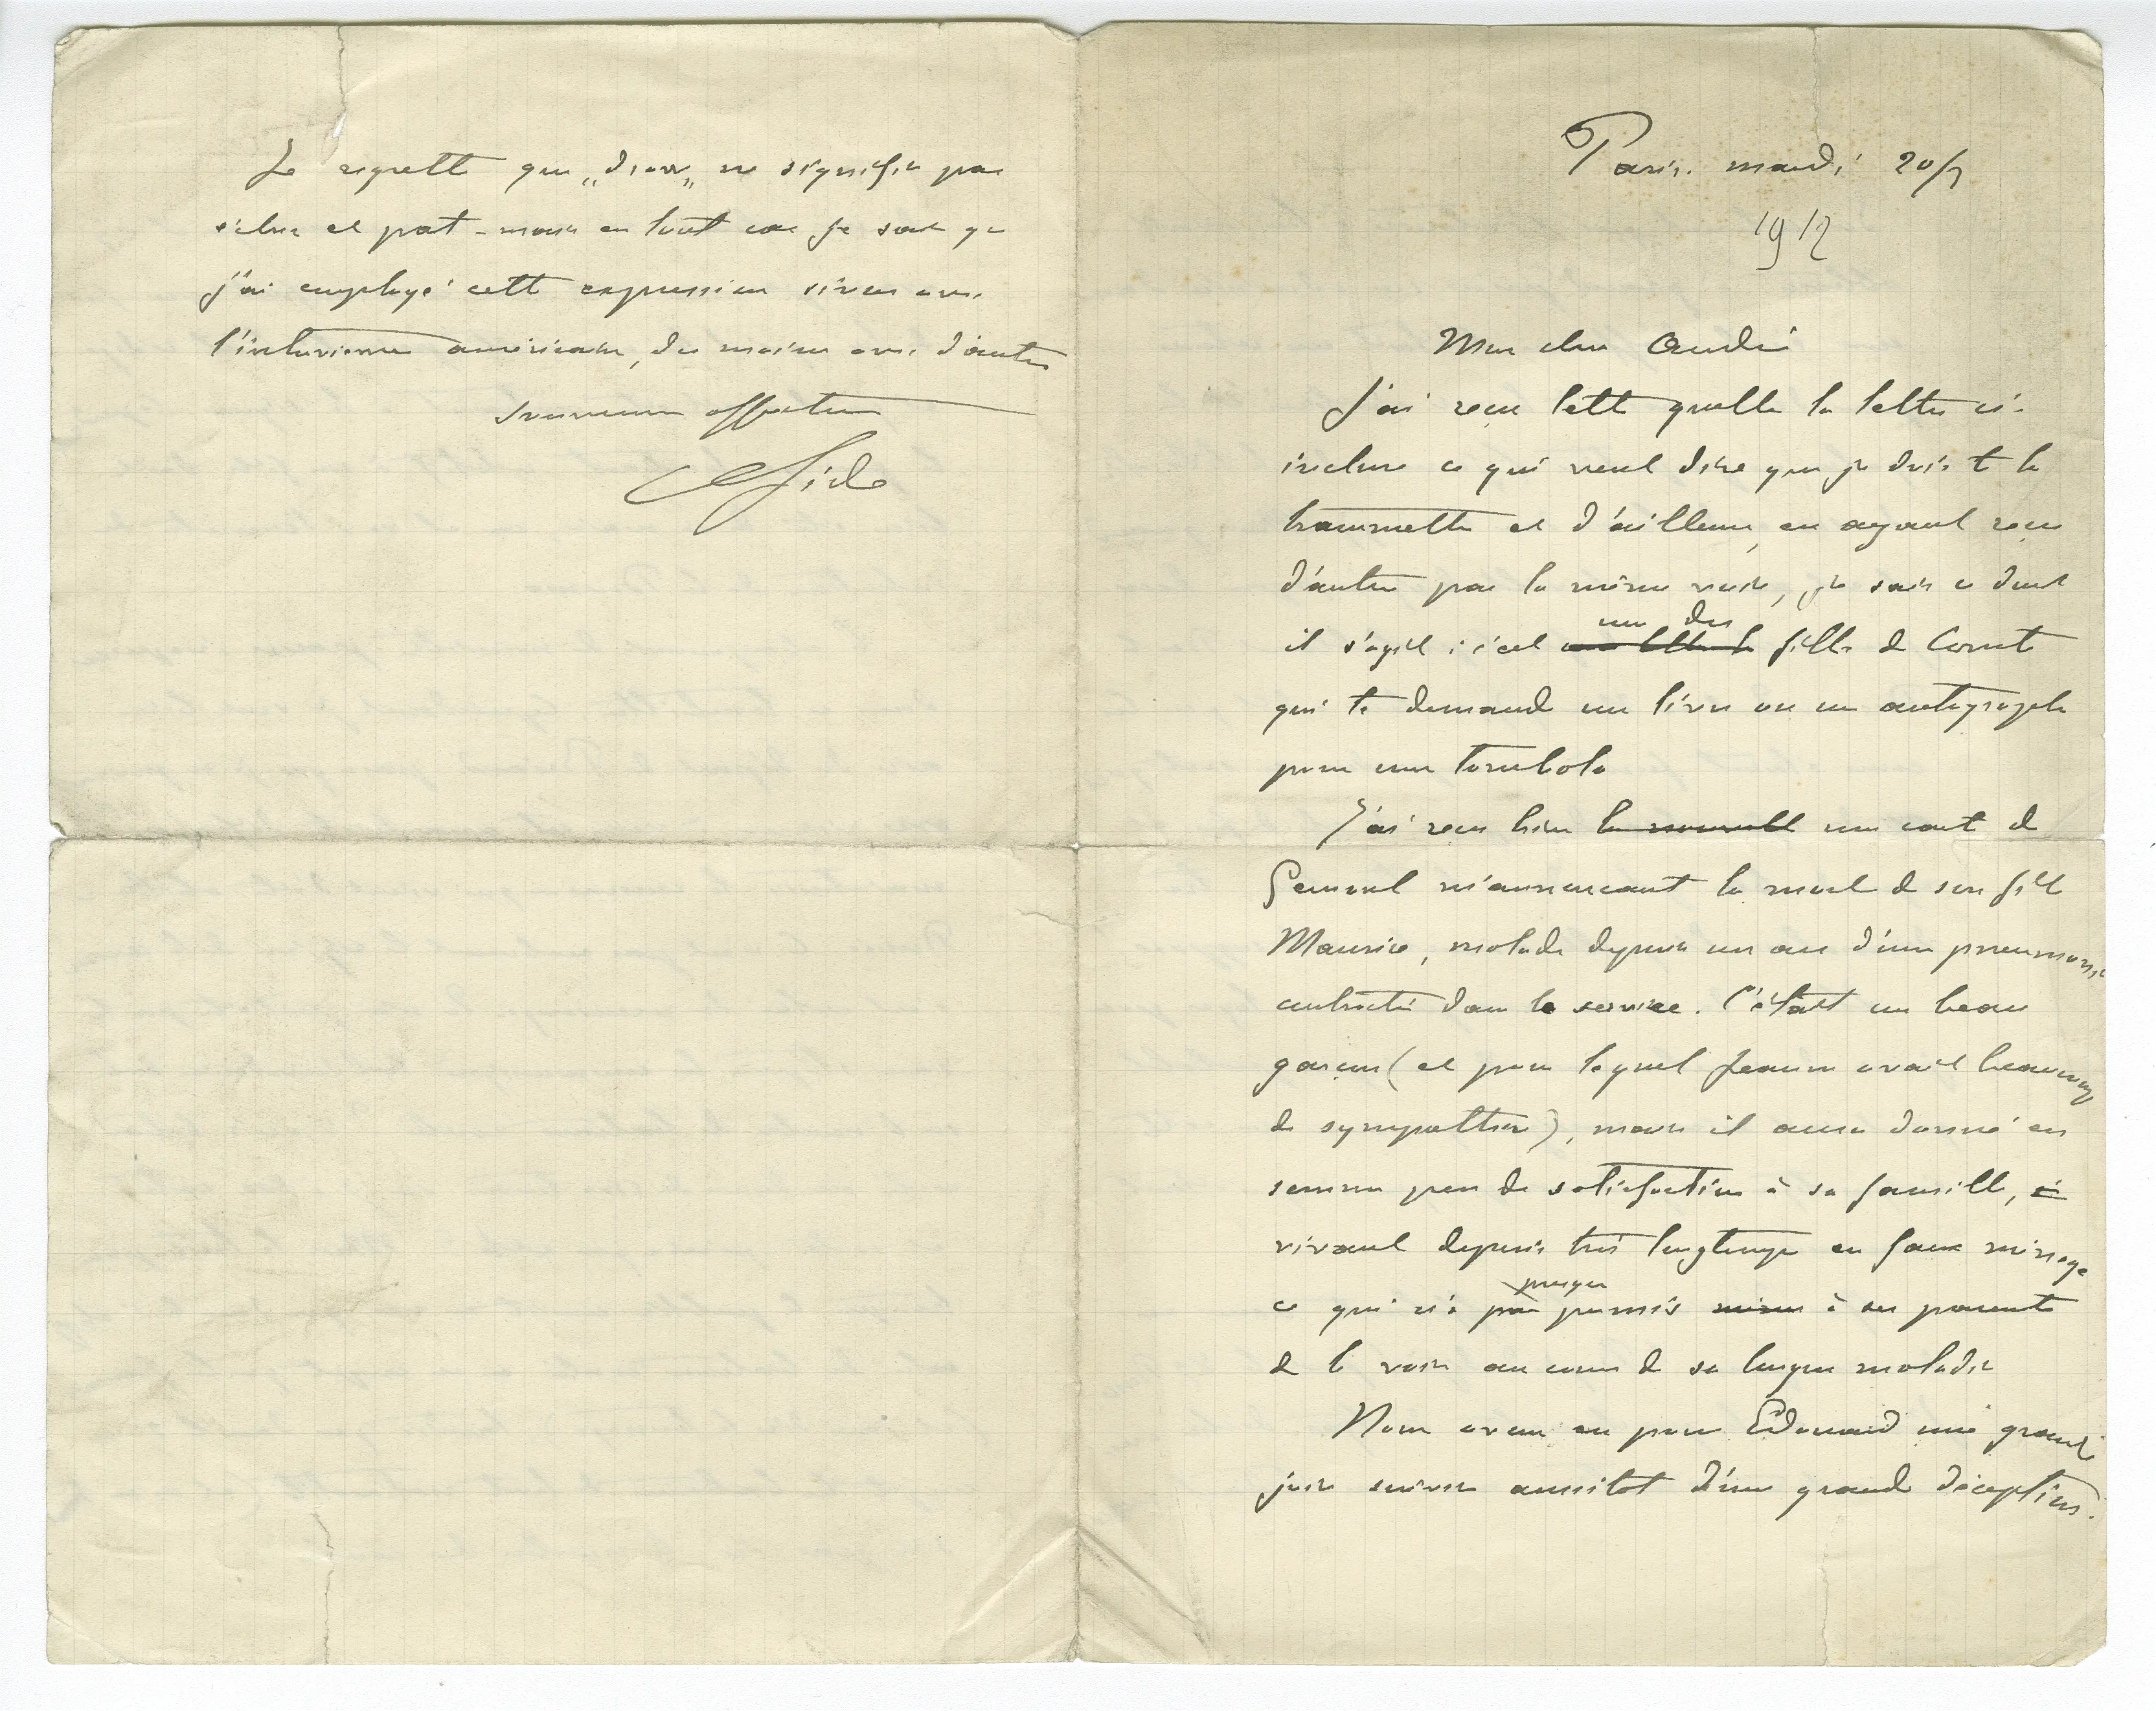 Paris. mardi 20/7
1912
Mon cher André
J'ai reçu telle quelle la lettre ci-
incluse ce qui veut dire que je dois te la
transmettre et d'ailleurs, en ayant reçu
d'autres par la même voie, je sais ce dont
une des
il s'agit : c'est filles de Comte
qui te demande un livre ou un autographe
pour une tombola
J'ai reçu hier la nouvelle une carte de
m'annonçant la mort de son fils
Maurice, malade depuis un an d'une pneumonie
contractée dans le service. C'était un beau
garçon (et pour lequel Jeanne avait beaucoup
de sympathie), mais il aura donné en
somme peu de satisfaction à sa famille, 
vivant depuis très longtemps en faux ménage
presque
ce qui n'a pas permis même à ses parents
de le voir au cours de sa longue maladie
Nous avons eu pour Edouard une grande
joie suivie aussitôt d'une grande déception.
Je regrette que „ ne signifie pas
et - mais en tout cas je sais que
j'ai employé cette expression sinon avec
l'intervieweur américain, du moins avec d'autres
affectueux
Ch Gide